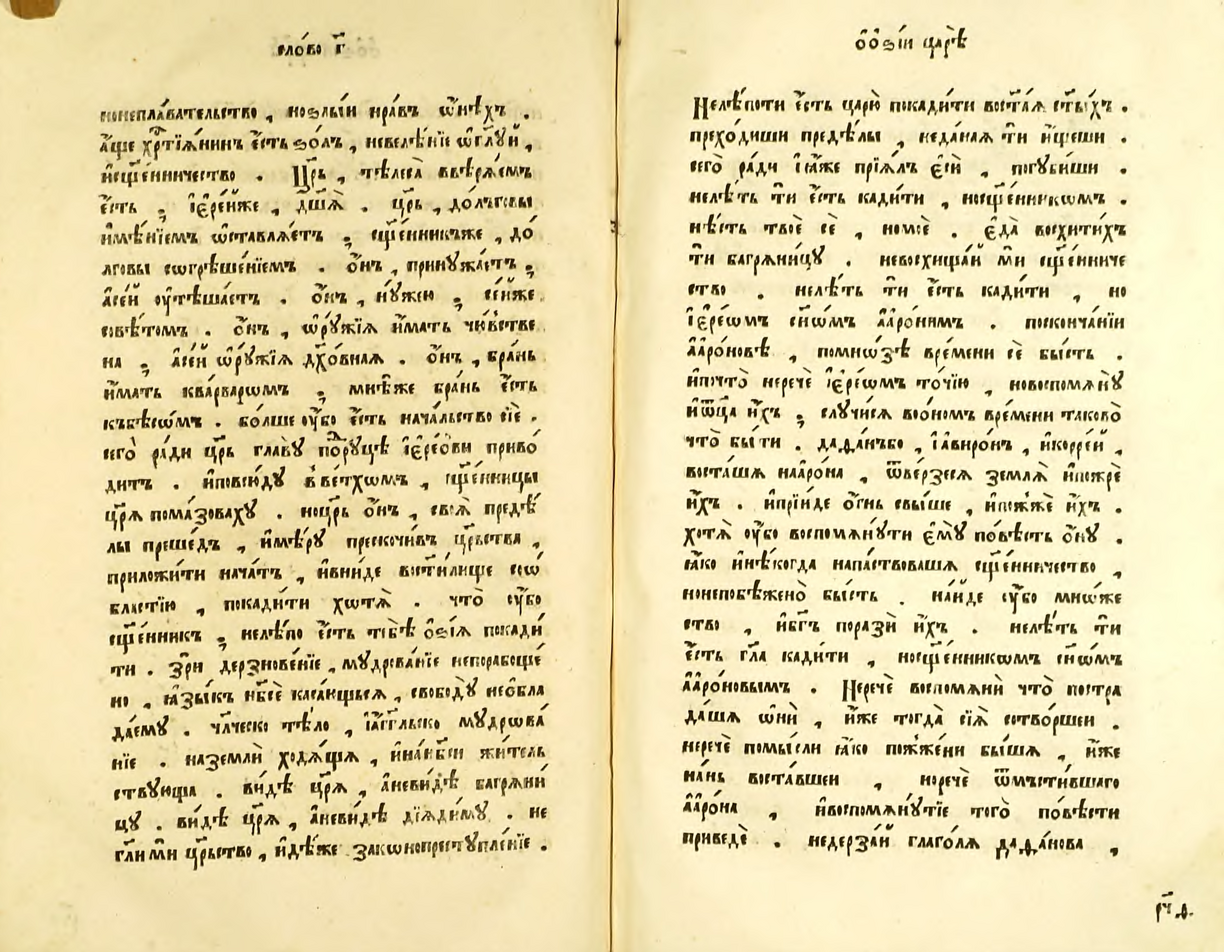 сло́во г҃
конепла́вательство , ноѕлы́и нра́въ ѡ҆ни́хъ .
а҆́ще хр҃тїѧ́нинъ є҆́сть ѕо́лъ , невеле́нїе ѡ҆глꙋ́й ,
и҆сщ҃е́нничество . Цр҃ь , тѣлеса̀ ввѣрѧ́емъ
є҆́сть , і҆ере́йже , дш҃ѧ̀ . цр҃ь , до́лъговы
и҆мѣ́нїемъ ѡ҆ставлѧ́етъ , сщ҃е́нникъже , до
лговы согрѣше́нїемъ . ѻ҆́нъ , принꙋжа́етъ ,
а҆се́й ᲂу҆тѣша́етъ . ѻ҆́нъ , нꙋ́жею , се́йже
совѣ́томъ . ѻ҆́нъ , ѡ҆рꙋ́жїѧ и҆́мать чю́встве
на , а҆се́й ѡ҆рꙋ́жїѧ дх҃о́внаѧ . ѻ҆́нъ , бра́нь
и҆́мать ква́рварѡмъ , мнѣ́же бра́нь є҆́сть
къбѣсѡ́мъ . бо́лше ᲂу҆́бо є҆́сть нача́льство сїѐ .
сего̀ ра́ди цр҃ь главꙋ̀ порꙋцѣ̀ і҆ере́ови приво́
дитъ . и҆повсю́дꙋ в̾ве́тхомъ , сщ҃е́нницы
цр҃ѧ̀ пома́зовахꙋ . ноцр҃ь ѻ҆́нъ , своѧ̀ предѣ́
лы преше́дъ , и҆мѣ́рꙋ прескочи́въ цр҃ьства ,
приложи́ти нача́тъ , и҆вни́де вст҃и́лище сою̀
бла́стїю , покади́ти хотѧ̀ . что̀ ᲂу҆́бо
сщ҃е́нникъ , нелѣ́по є҆́сть тебѣ̀ ѻ҆́ѕїѧ покади́
ти . Зри̑ дерзнове́нїе , мꙋдрова́нїе непорабоще́
но , ꙗ҆зы́къ нб҃сѐ каса́ющьсѧ , свобо́дꙋ неѻ҆бла
да́емꙋ . чл҃ческо тѣ́ло , і҆а҆́гг҃льско мꙋдрова́
нїе . наземлѝ ходѧ́щѧ , и҆нан҃бсѝ жи́тель
ствꙋюща . ви́дѣ цр҃ѧ̀ , а҆неви́дѣ багрѧни́
цꙋ . ви́дѣ цр҃ѧ̀ , а҆неви́дѣ дїѧди́мꙋ . не
гл҃и мѝ цр҃ьство , и҆дѣ́же законопрестꙋпле́нїе .
ѻ҆ѻ҆́ѕїи царѣ̀
Нелѣ́поти є҆́сть царю̀ покади́ти вост҃а́ѧ ст҃ы́хъ .
прехо́диши предѣ́лы , неда́наѧ тѝ и҆́щеши .
сего̀ ра́ди і҆ꙗ҆́же прїѧ́лъ є҆сѝ , погꙋ́биши .
нелѣ́ть тѝ є҆́сть кади́ти , носщ҃е́нникѡмъ .
нѣ́сть твоѐ сѐ , номоѐ . є҆да̀ восхити́хъ
тѝ багрѧни́цꙋ . невосхища́й мѝ сщ҃е́нниче
ство . нелѣ́ть тѝ є҆́сть кади́ти , но
і҆ере́ѡмъ сн҃ѡ́мъ а҆арѡ́нимъ . посконча́нїи
а҆арѡ́новѣ , помно́зѣ вре́мени сѐ бы́сть .
и҆почто̀ неречѐ і҆ере́ѡмъ то́чїю , новоспомѧнꙋ̀
и҆ѿца̀ и҆́хъ , слꙋчи́сѧ воо́номъ вре́мени таково̀
что̀ бы́ти . даѳа́нъбо , і҆авиро́нъ , и҆корре́й ,
воста́шѧ наа҆ро́на , ѿве́рзесѧ землѧ̀ и҆пожрѐ
и҆́хъ . и҆прїи́де ѻ҆́гнь свы́ше , и҆пожжѐ и҆́хъ .
хотѧ̀ ᲂу҆́бо воспомѧнꙋ́ти є҆мꙋ̀ по́вѣсть ѻ҆́нꙋ .
ꙗ҆́ко и҆нѣ́когда напа́ствовашѧ сщ҃е́нничество ,
нонепобѣжено̀ бы́сть . наи́де ᲂу҆́бо мно́же
ство , и҆бг҃ъ поразѝ и҆́хъ . нелѣ́ть тѝ
є҆́сть гл҃ѧ кади́ти , носщ҃е́нникѡмъ сн҃ѡ́мъ
а҆арѡ́новымъ . Неречѐ воспомѧнѝ что̀ постра
да́шѧ ѡ҆нѝ , и҆́же тогда̀ сїѧ̀ сотво́ршеи .
неречѐ помы́сли ꙗ҆́ко пожже́ни бы́шѧ , и҆́же
на́нь воста́вшеи , норечѐ ѿмсти́вшаго
а҆арѡ́на , и҆воспомѧнꙋ́тїе того̀ по́вѣсти
приведѐ . недерза́й глаго́лѧ даѳа́нова ,
рч҃ д.